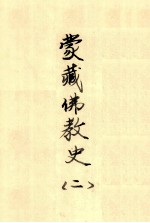 蒙藏佛教史
（二）